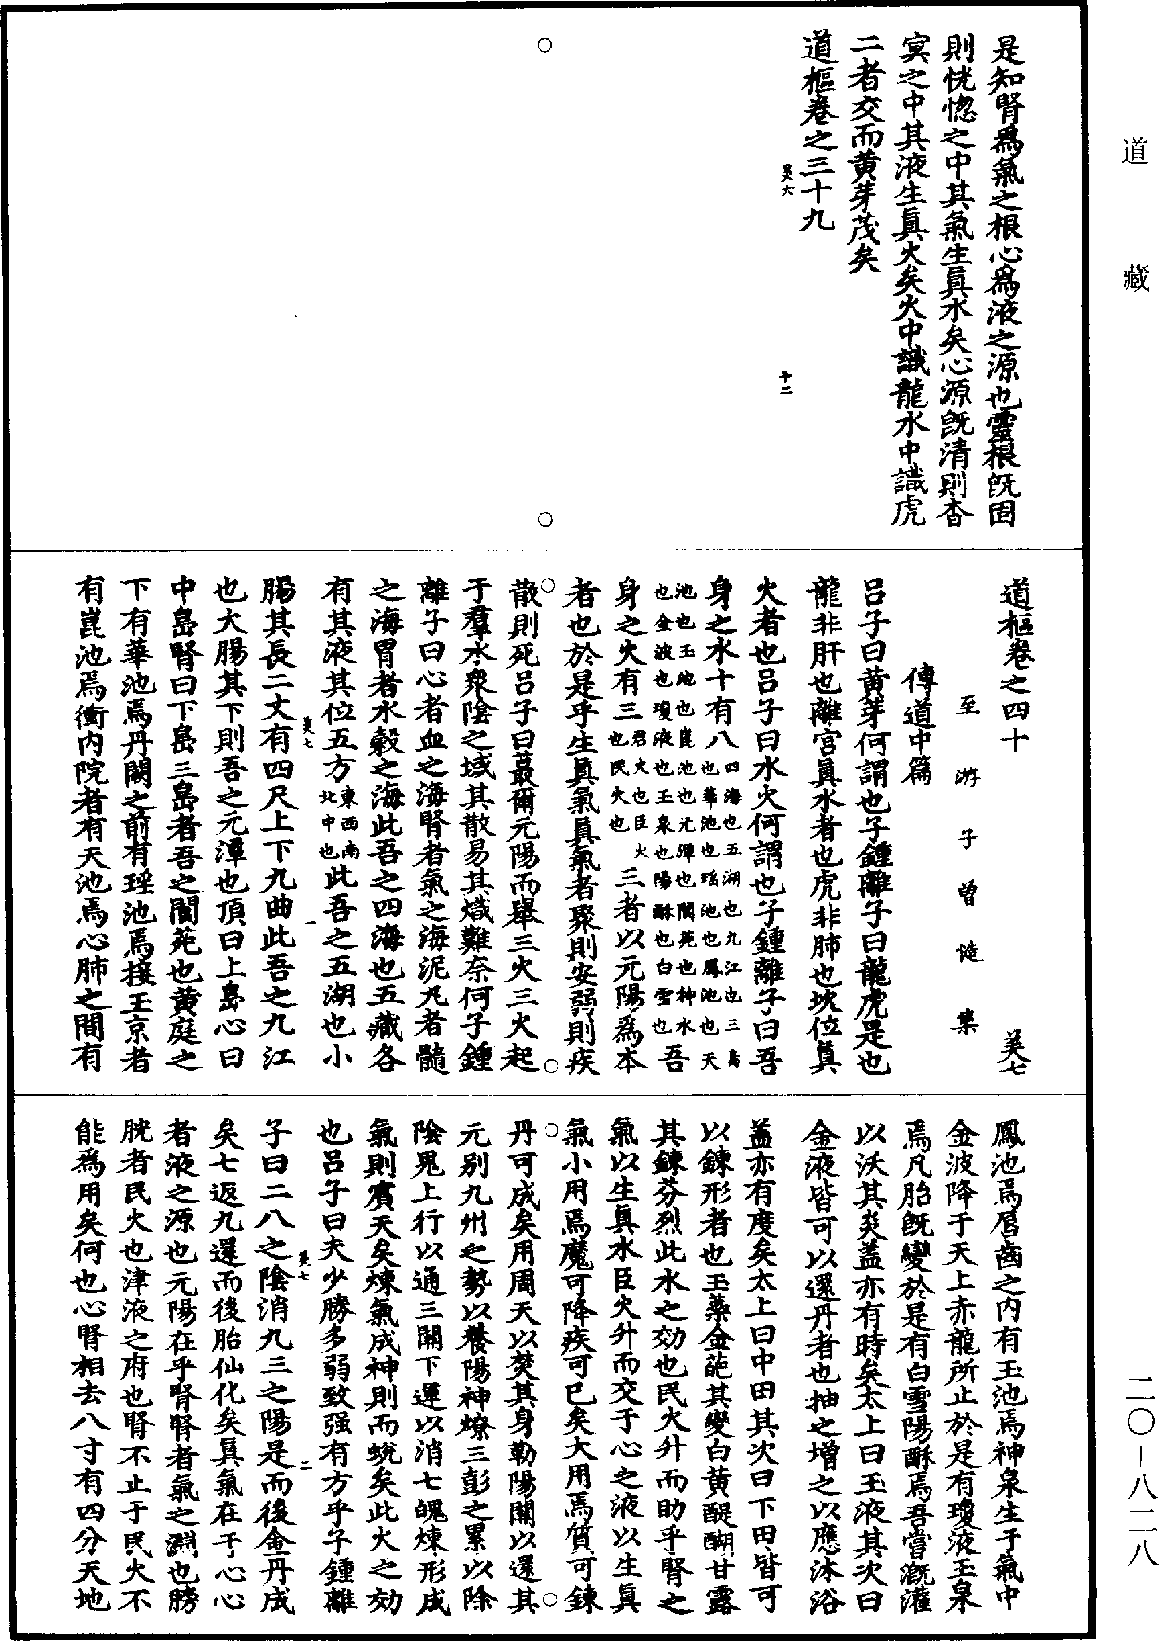 道藏
是知腎爲氣之根心爲液之源也靈根旣固
則恍惚之中其氣生眞水矣心源旣清則杳
冥之中其液生眞火矣火中識龍水中識虎
二者交而黄芽茂矣
道樞卷之三十九
美六 十二
道樞卷之四十 美七
至游子曾慥集
傳道中篇
吕子曰黄芽何謂也子鍾離子曰龍虎是也
龍非肝也離宫眞水者也虎非肺也坎位眞
火者也吕子曰水火何謂也子鍾離子曰吾
身之水十有八四海也五湖也九江也三島也華池也瑶池也鳳池也天
池也玉池也崑池也元潭也閬苑也神水也金波也瓊液也玉泉也陽酥也白雪也吾
身之火有三君火也臣火也民火也三者以元陽爲本
者也於是乎生眞氣眞氣者聚則安弱則疾
散則死吕子曰蕞爾元陽而舉三火三火起
于羣水衆陰之域其散易其熾難奈何子鍾
離子曰心者血之海腎者氣之海泥九者髓
之海胃者水穀之海此吾之四海也五藏各
有其液其位五方東西南北中也此吾之五湖也小
美七 一
腸其長二丈有四尺上下九曲此吾之九江
也大腸其下則吾之元潭也頂曰上島心曰
中島腎曰下島三島者吾之閬苑也黄庭之
下有華池焉丹闕之前有瑶池焉接玉京者
有崑池焉衝内院者有天池焉心肺之間有
鳳池焉唇齒之内有玉池焉神泉生于氣中
金波降于天上赤龍所止於是有瓊液玉泉
焉凡胎旣變於是有白雪陽酥焉吾嘗漑灌
以沃其炎蓋亦有時矣太上曰玉液其次曰
金液皆可以還丹者也抽之增之以應沐浴
蓋亦有度矣太上曰中田其次曰下田皆可
以鍊形者也玉藥金葩其變白黄醍醐甘露
其鍊芬烈此水之効也民火升而助乎腎之
氣以生眞水臣火升而交于心之液以生眞
氣小用焉魔可降疾可已矣大用焉質可鍊
丹可成矣用周天以焚其身勒陽關以還其
元别九州之勢以養陽神燎三彭之累以除
陰鬼上行以通三關下運以消七魄煉形成
氣則賓天矣煉氣成神則而蜕矣此火之効
也吕子曰夫少勝多弱致强有方乎子鍾離
美七 二
子曰二八之陰消九三之陽是而後金丹成
矣七返九還而後胎仙化矣眞氣在于心心
者液之源也元陽在乎腎腎者氣之淵也膀
胱者民火也津液之府也腎不止于民火不
能爲用矣何也心腎相去八寸有四分天地
二〇—八二八